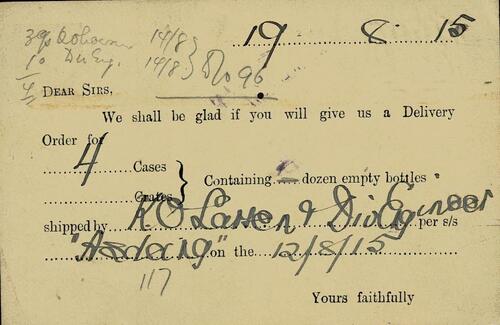 19 8 15
14/8
10 Div Eng. 14/8 D/o 96
4
DEAR SIRS,
We shall be glad if you will give us a Delivery
Order for
4 Cases
Crates
Containing dozen empty bottles
shipped by K O Larsen & Div Engineer per s/s
on the 12/8/15
117
Yours faithfully